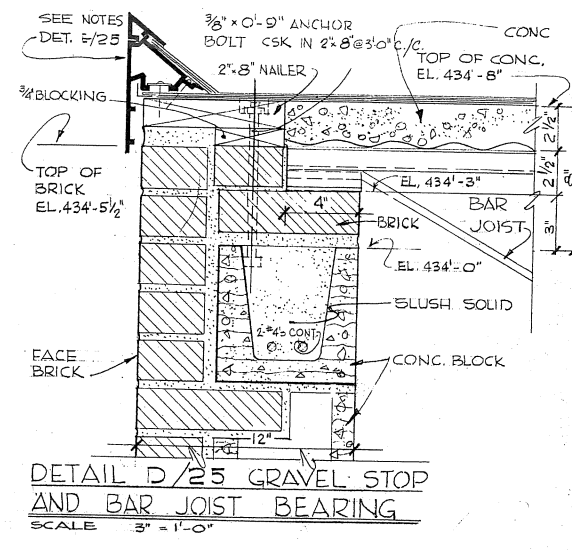 SEE NOTES
DET. E/25
3/8" x 0'-9" ANCHOR
BOLT CSK IN 2"x8"@3'-0" C./C.
2"x8" NAILER
CONC
TOP OF CONC,
EL. 434'-8"
3/4" BLOCKING
TOP OF
BRICK
EL. 434'-5 1/2"
2 1/2"
2 1/2"
8"
3"
EL. 434'-3"
4"
BRICK
BAR
JOIST
EL. 434'-0"
SLUSH SOLID
2-#4'S CONT.
FACE
BRICK
CONC. BLOCK
12"
DETAIL D/25 GRAVEL STOP
AND BAR JOIST BEARING
SCALE 3" = 1'-0"